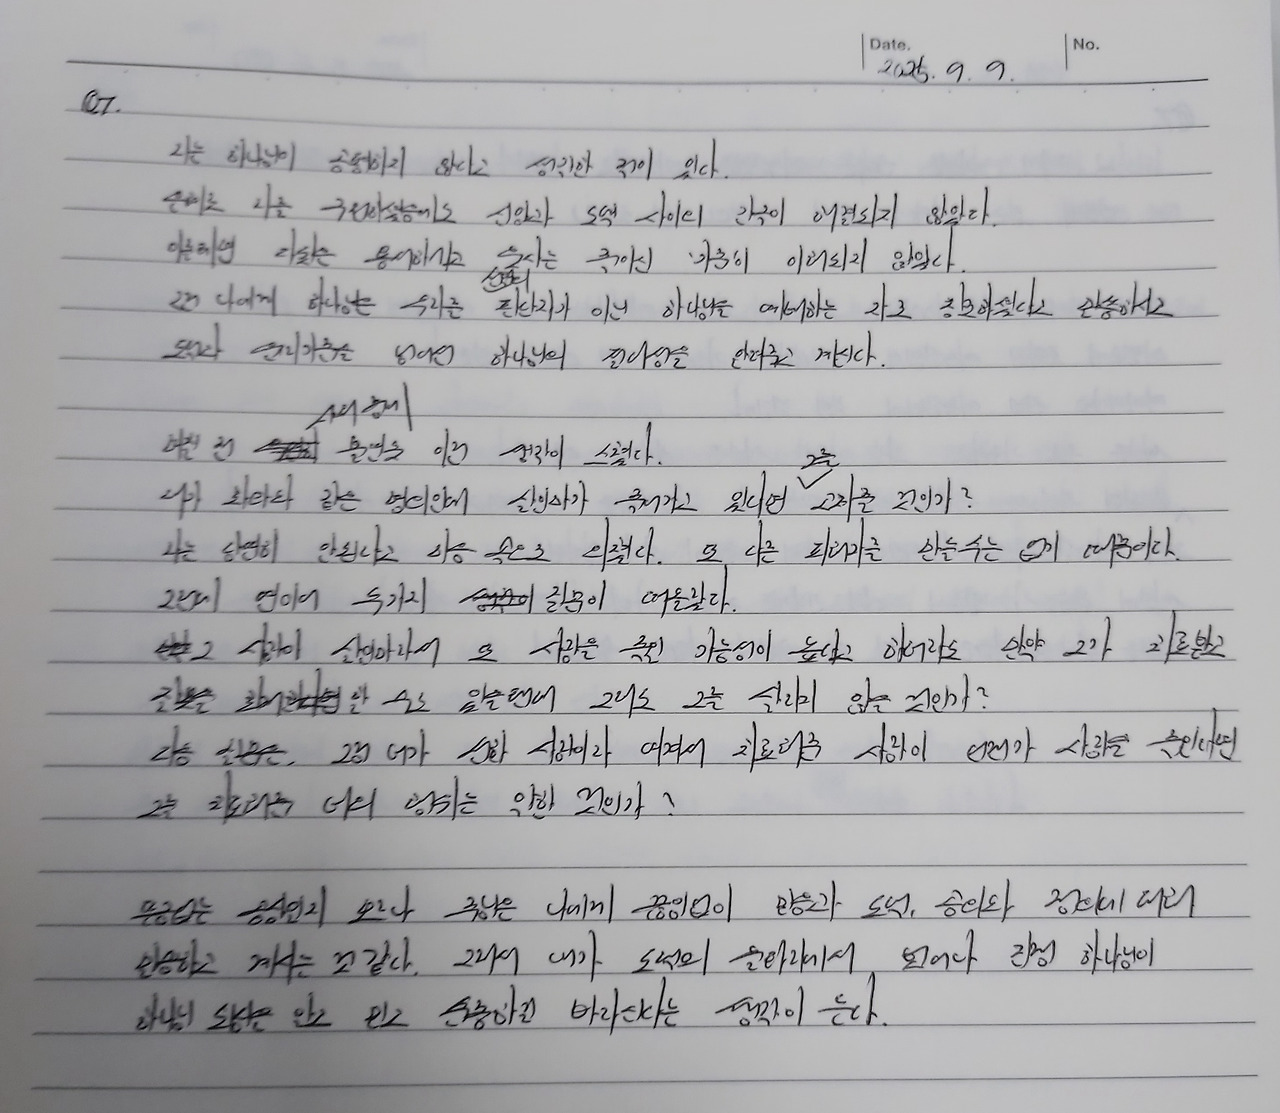 Date. No.
2025. 9. 9.
QT.
나는 하나님이 공평하지 않다고 생각한 적이 있다.
은혜로 나를 구원하셨음에도 신앙과 도덕 사이의 간극이 해결되지 않았다.
이를테면 다윗은 용서하시고 웃사는 죽이신 기준이 이해되지 않았다.
그런 나에게 하나님은 우리를 선악의 판단자가 아닌 하나님을 예배하는 자로 창조하셨다고 말씀하시고
도덕과 윤리기준을 넘어선 하나님의 절대성을 알려주고 계시다.
며칠 전 샤워 중에 문득 이런 생각이 스쳤다.
내가 의사와 같은 영화안에 살인마가 죽어가고 있다면 그를 고쳐줄 것인가?
나는 당연히 안된다고 마음 속으로 외쳤다. 또 다른 피해자를 만들 수는 없기 때문이다.
그런데 연이어 두가지 질문이 떠올랐다.
그 사람이 살인마라서 또 사람을 죽일 가능성이 높다고 하더라도 만약 그가 치료받고
알 수도 있을텐데 그래도 그를 살리지 않을 것인가?
다음 질문은, 그럼 너가 선한 사람이라 여겨서 치료해준 사람이 언젠가 사람을 죽인다면
그를 치료해준 너의 행위는 악한 것인가?
뜬금없는 음성인지 모르나 주님은 나에게 끊임없이 믿음과 도덕, 공의와 정의에 대해
말씀하고 계시는 것 같다. 그래서 내가 도덕의 울타리에서 벗어나 진정 하나님이
하나님 되심을 알고 믿고 순종하길 바라신다는 생각이 든다.